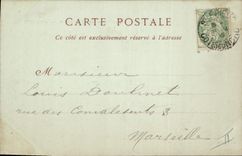 CARTE POSTALE
Ce côté est exclusivement réservé à l'adresse
Monsieur
Louis
rue des Convalescents 3
Marseille